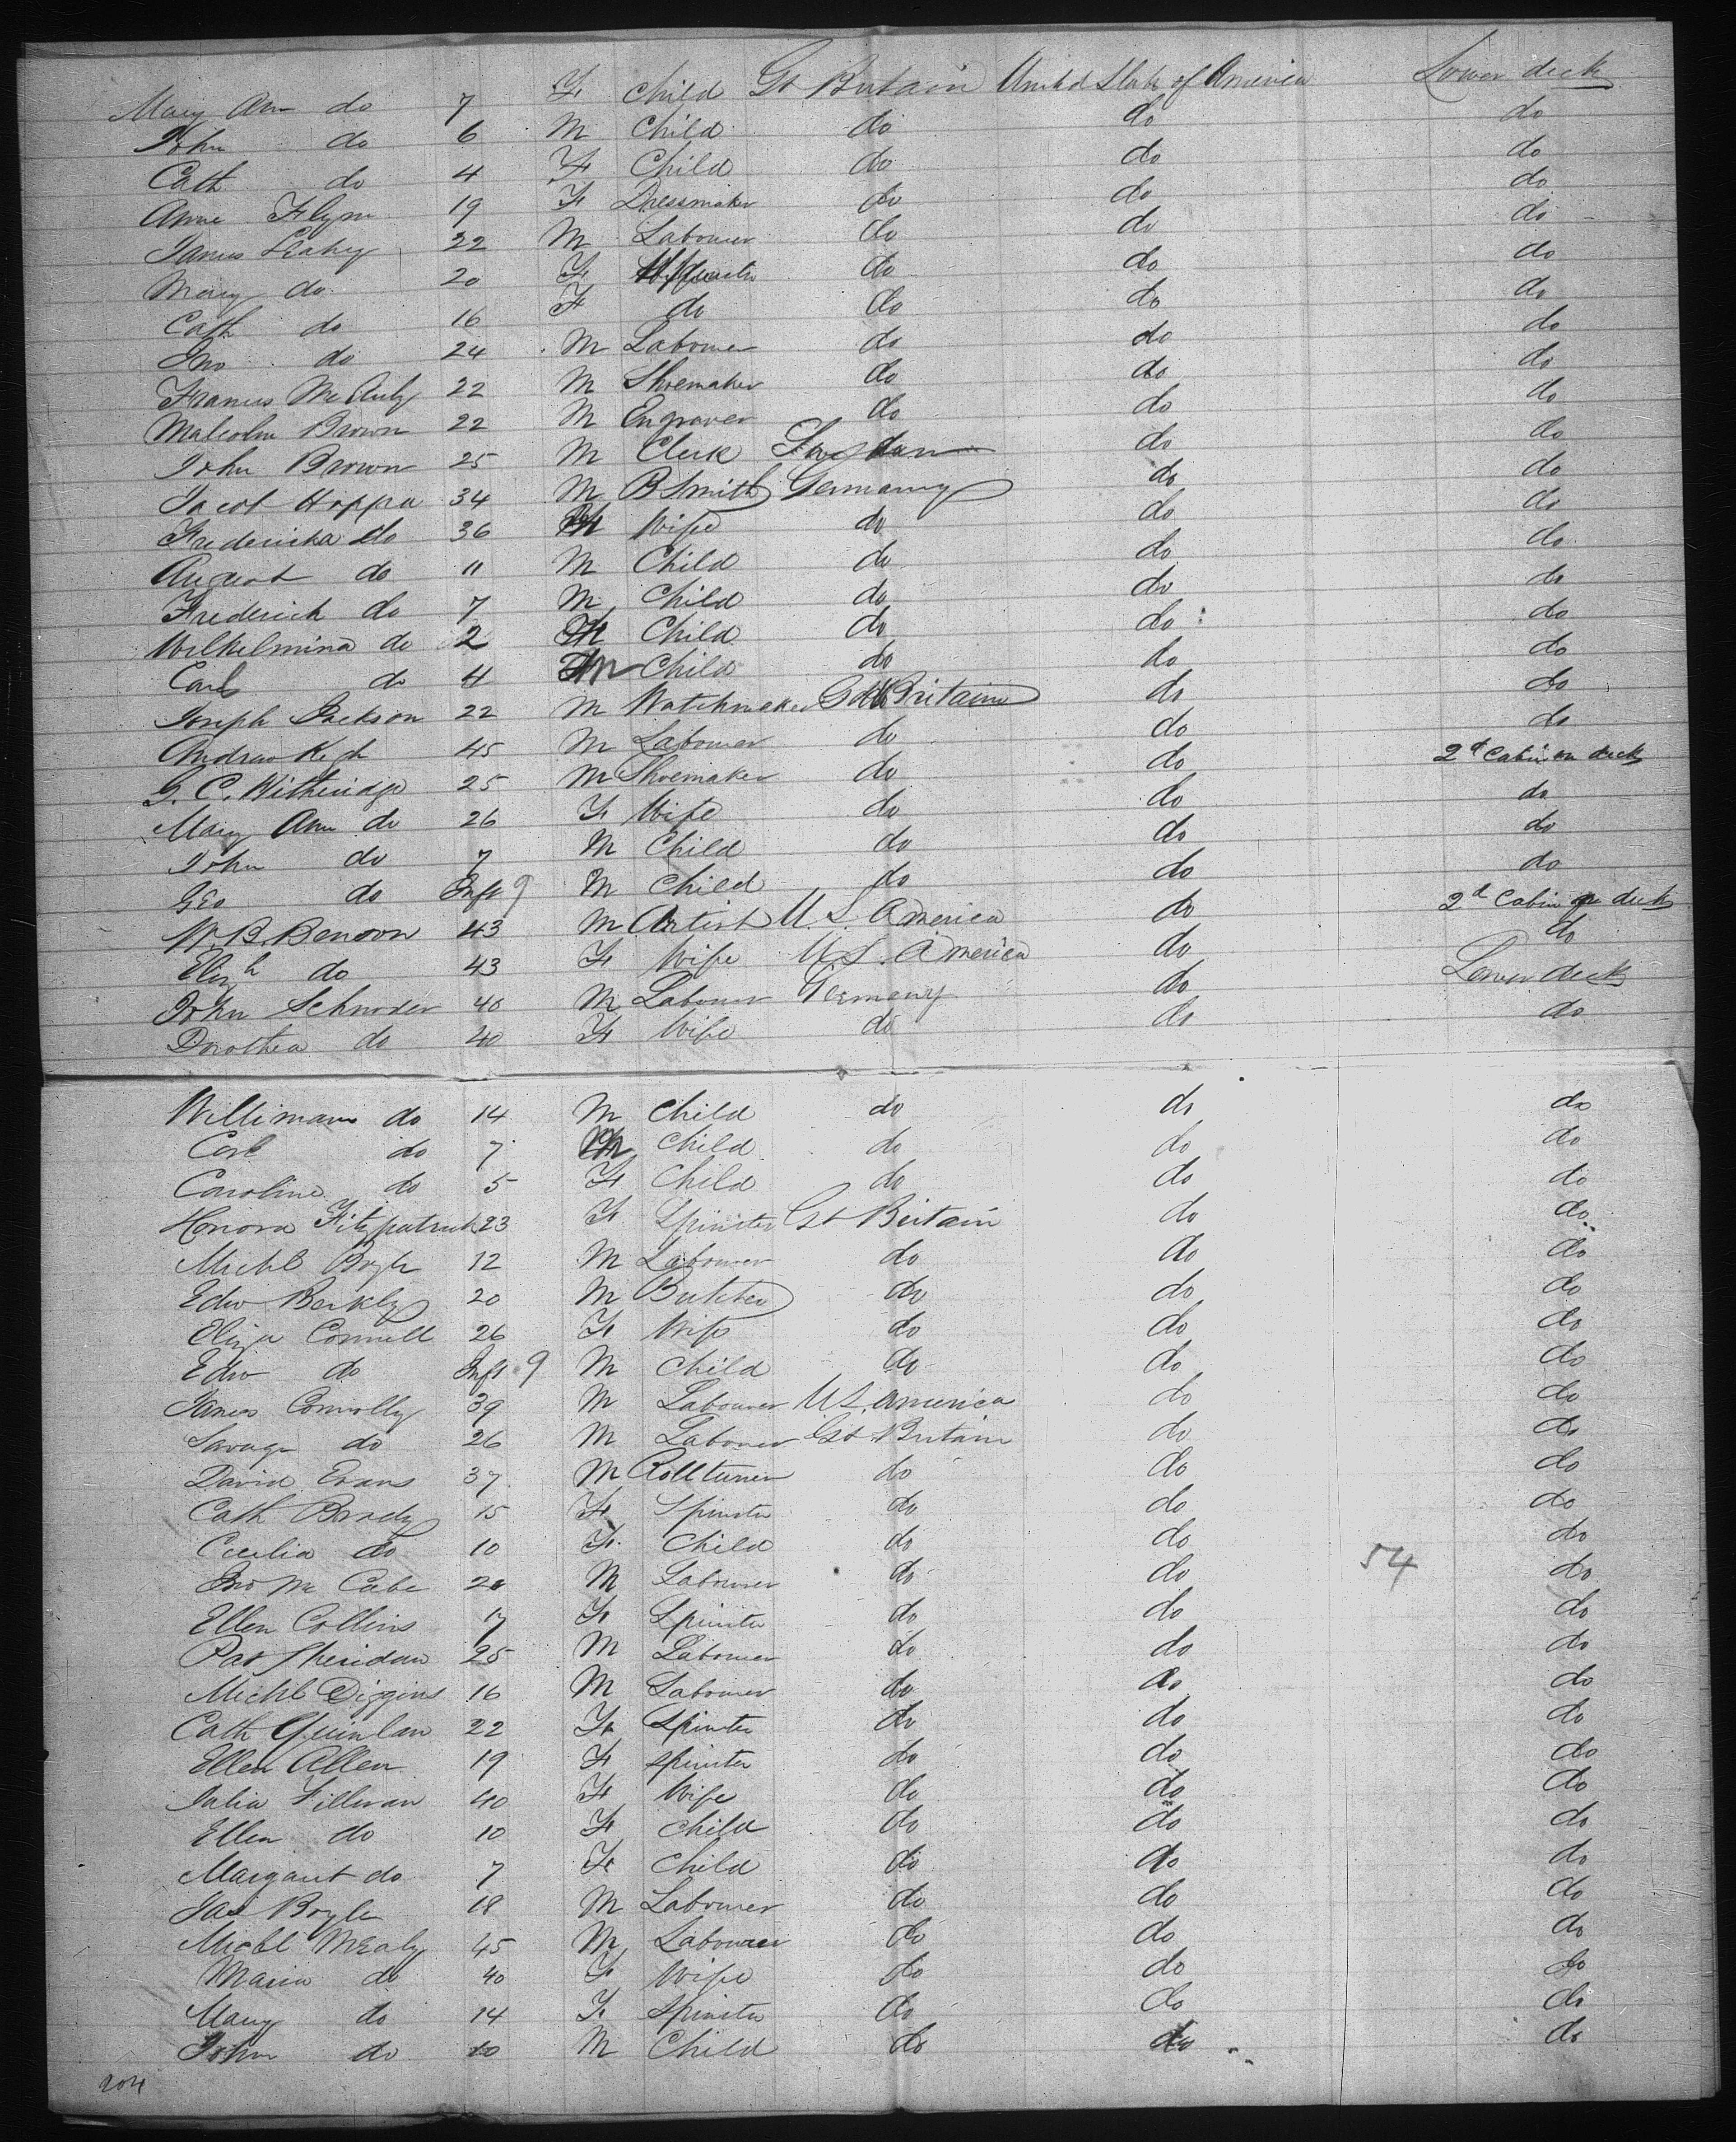 Mary Ann do 7 F Child Gt Britain United State of America Lower deck
John do 6 M Child do do do
Cath do 4 F Child do do do
Anne Flynn 19 F Dressmaker do do do
James Leahy 22 M Labourer do do do
Mary do 20 F do do do
Cath do 16 F do do do do
Jno do 24 M Labourer do do do
Francis Mc Auly 22 M Shoemaker do do do
Malcolm Brown 22 M Engraver do do do
John Brown 25 M Clerk do do do
Jacob Hoppa 34 M B Smith Germany do do
Fredericka do 36 Wife do do do
August do 11 M Child do do do
Frederick do 7 M Child do do do
Wilhelmina do 2 F Child do do do
Carl do 4 M Child do do do
Joseph Jackson 22 M Watchmaker Gt Britain do do
Andrew Keoh 45 M Labourer do do do
G. C. Witheridge 25 M Shoemaker do do 2d Cabin on deck
Mary Ann do 26 F Wife do do do
John do 7 M Child do do do
Geo do Inft 9 M Child do do do
W. B. Benson 43 M Artist U. S. America do 2d Cabin on deck
Elizh do 43 F Wife U S. America do do
John Schnoder 40 M Labourer Germany do Lower deck
Dorothea do 40 F Wife do do do
Willimam do 14 M Child do do do
Carl do 7 M Child do do do
Caroline do 5 F Child do do do
Honora Fitzpatrick 23 F Spinster Gt Britain do do
Michl Boyle 12 M Labourer do do do
Edw Berkly 20 M Butcher do do do
Eliza Connell 26 F Wife do do do
Edw do Inft 9 M Child do do do
James Connolly 39 M Labourer U S. America do do
Savage do 26 M Labourer Gt Britain do do
David Evans 37 M Rollturner do do do
Cath Brody 15 F Spinster do do do
Cecilia do 10 F Child do do do
Jno Mc Cabe 20 M Labourer do do 54 do
Ellen Collins 17 F Spinster do do do
Pat Sheridan 25 M Labourer do do do
Michl Diggins 16 M Labourer do do do
Cath Quinlan 22 F Spinster do do do
Ellen Allen 19 F Spinster do do do
Julia Fillivan 40 F Wife do do do
Ellen do 10 F Child do do do
Margaret do 7 F Child do do do
Jas Boyle 18 M Labourer do do do
Michl McEaly 45 M Labourer do do do
Maria do 40 F Wife do do do
Mary do 14 F Spinster do do do
John do 10 M Child do do do
204